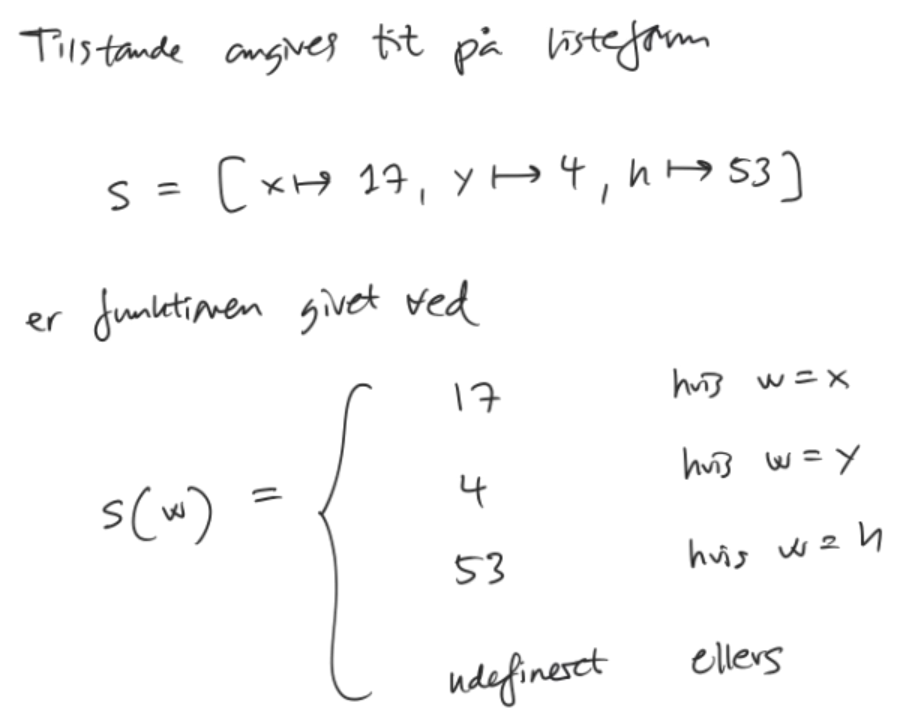 Tilstande angives tit på listeform
s = [x ↦ 17, y ↦ 4, h ↦ 53]
er funktionen givet ved
17 hvis w = x
4 hvis w = y
s(w) = {
53 hvis w = h
udefineret ellers